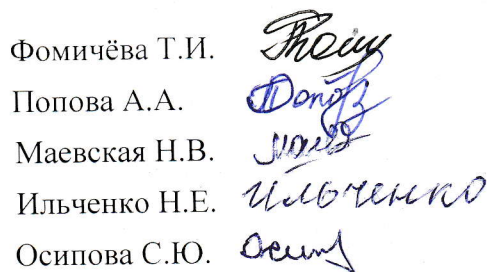 Фомичёва Т.И.
Попова А.А.
Маевская Н.В.
Ильченко Н.Е. Ильченко
Осипова С.Ю.